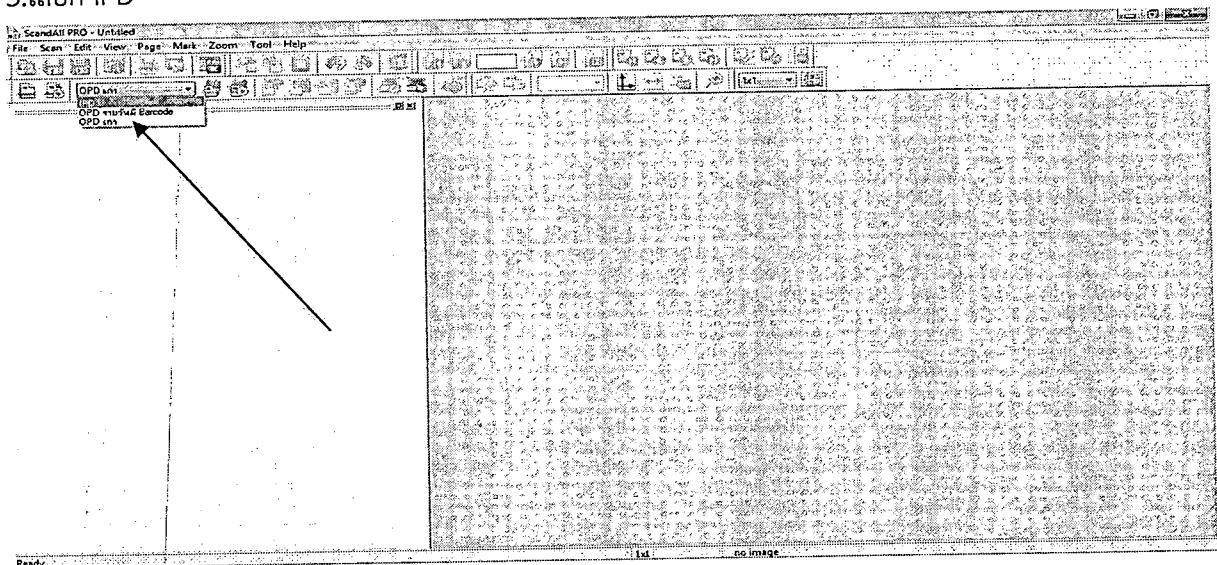 ScandAll PRO - Untitled
File Scan Edit View Page Mark Zoom Tool Help
OPD เก่า
1x1
OPD รายวันมี Barcode
OPD เก่า
Ready
1x1 no image